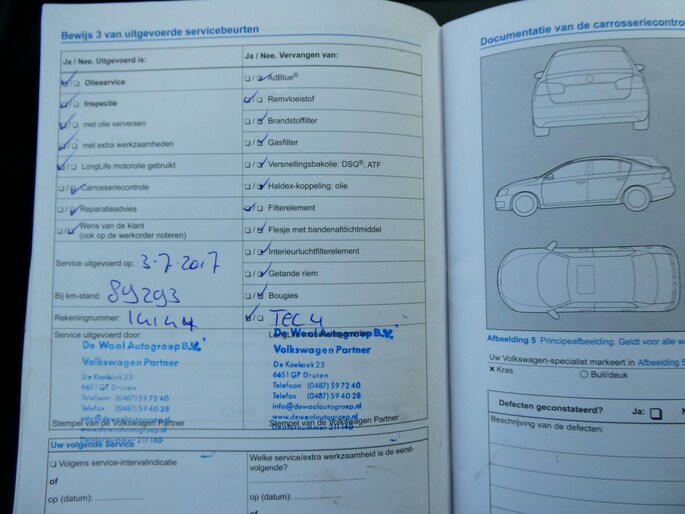 Bewijs 3 van uitgevoerde servicebeurten
Ja / Nee. Uitgevoerd is:
Olieservice
Inspectie
met olie verversen
met extra werkzaamheden
LongLife motorolie gebruikt
Carrosseriecontrole
Reparatieadvies
Wens van de klant
(ook op de werkorder noteren)
Service uitgevoerd op: 3-7-2017
Bij km-stand: 89293
Rekeningnummer:
Service uitgevoerd door:
De Waal Autogroep B.V.
Volkswagen Partner
De Koekoek 23
6651 GP Druten
Telefoon (0487) 59 72 40
Telefax (0487) 59 40 28
info@dewaalautogroep.nl
www.dewaalautogroep.nl
Stempel van de Volkswagen Partner
Dealernummer 211140
Ja / Nee. Vervangen van:
AdBlue®
Remvloeistof
Brandstoffilter
Gasfilter
Versnellingsbakolie: DSG®, ATF
Haldex-koppeling: olie
Filterelement
Flesje met bandenafdichtmiddel
Interieurluchtfilterelement
Getande riem
Bougies
TEC 4
De Waal Autogroep B.V.
Volkswagen Partner
De Koekoek 23
6651 GP Druten
Telefoon (0487) 59 72 40
Telefax (0487) 59 40 28
info@dewaalautogroep.nl
www.dewaalautogroep.nl
Stempel van de Volkswagen Partner
Dealernummer 211140
Uw volgende Service
Volgens service-intervalindicatie
of
op (datum):
Welke service/extra werkzaamheid is de eerst-
volgende?
of
op (datum):
Documentatie van de carrosseriecontro
Afbeelding 5 Principeafbeelding. Geldt voor alle
Uw Volkswagen-specialist markeert in Afbeelding 5
× Kras
○ Buil/deuk
Defecten geconstateerd? Ja:
Beschrijving van de defecten: